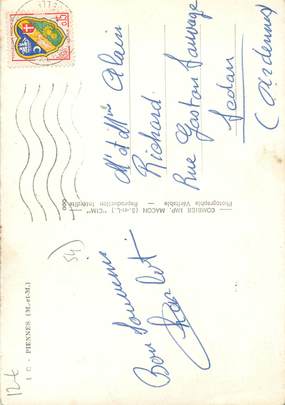 1 C - PIENNES (M.-et-M.)
Bon Souvenir
COMBIER IMP. MACON (S.-et-L.) "CIM"
Photographie Véritable - Reproduction Interdite
Mr et Mme Alain
Richard
Rue Gaston Sauvage
Sedan
(Ardennes)
0,15
54
12 €